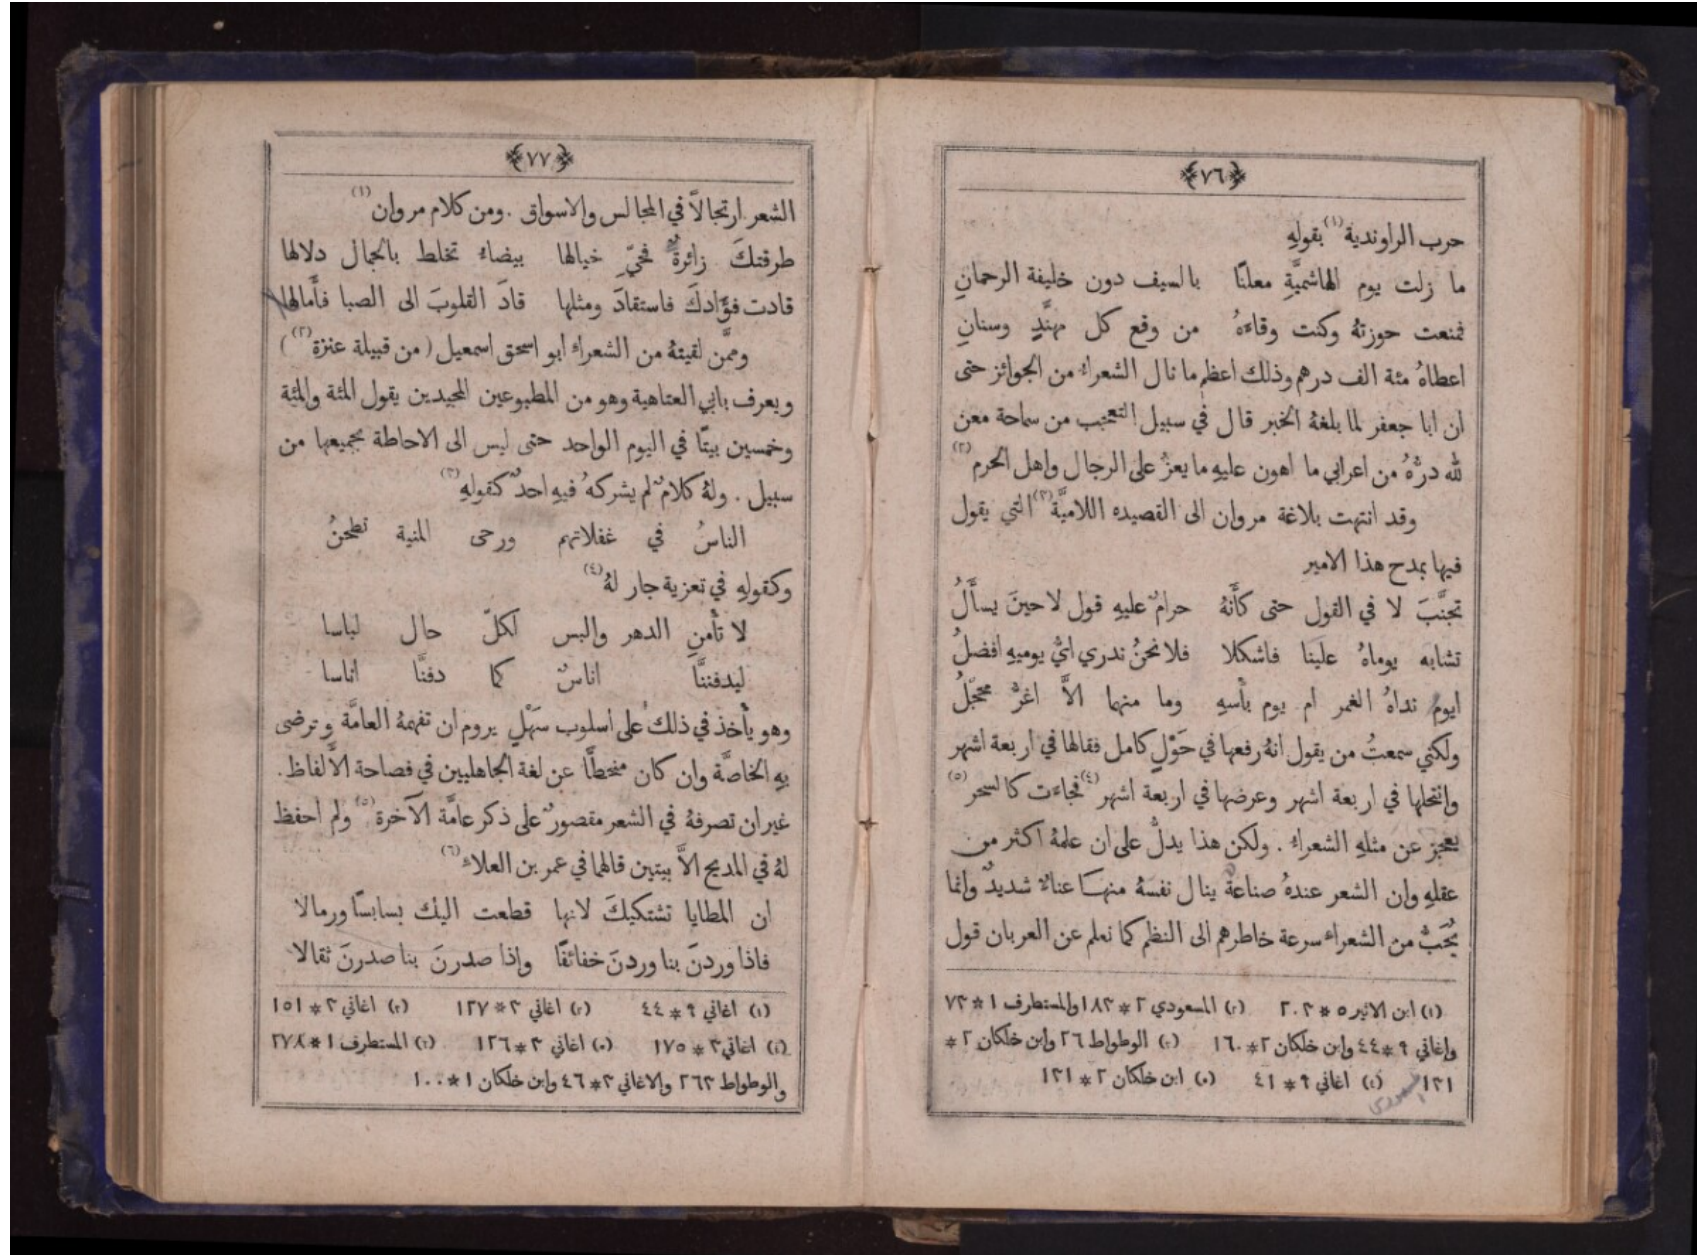 ﴿٧٦﴾
حرب الراوندية (١) بقولهِ
ما زلت يوم الهاشميَّةِ معلنًا بالسيف دون خليفة الرحمانِ
فمنعت حوزتهُ وكنت وقاءَهُ من وقع كل مهنَّدٍ وسنانِ
اعطاهُ مئة الف درهم وذلك اعظم ما نال الشعراءُ من الجوائز حتى
ان ابا جعفر لما بلغهُ الخبر قال في سبيل التعجب من سماحة معن
لله درُّهُ من اعرابي ما اهون عليهِ ما يعزُّ على الرجال واهل الحزم (٢)
وقد انتهت بلاغة مروان الى القصيده اللاميَّة (٣) التي يقول
فيها بمدح هذا الامير
تجنَّبَ لا في القول حتى كأَنَّهُ حرامٌ عليهِ قول لا حينَ يسأَلُ
تشابه يوماهُ علَينا فاشكلا فلا نحنُ ندري ايُّ يوميهِ افضلُ
ايومُ نداهُ الغمر ام يوم بأسهِ وما منهما الاَّ اغرُّ محجَّلُ
ولكني سمعتُ من يقول انهُ رفعها في حَوْلٍ كامل فقالها في اربعة اشهر
وانتحلها في اربعة اشهر وعرضها في اربعة اشهر (٤) فجاءَت كالسحر (٥)
يعجز عن مثلهِ الشعراءُ . ولكن هذا يدلُّ على ان علمهُ اكثر من
عقلهِ وان الشعر عندهُ صناعةٌ ينال نفسهُ منهـا عناءٌ شديدٌ وانما
يُحَبُّ من الشعراءِ سرعة خاطرهم الى النظم كما نعلم عن العربان قول
(١) ابن الاثير ٥ * ٢٠٢ (٢) المسعودي ٢ * ١٨٢ والمستطرف ١ * ٧٢
واغاني ٩ * ٤٤ وابن خلكان ٢ * ١٦٠ (٣) الوطواط ٢٦ وابن خلكان ٢ *
١٢١ (٤) اغاني ٩ * ٤١ (٥) ابن خلكان ٢ * ١٢١
﴿٧٧﴾
الشعر ارتجالاً في المجالس والاسواق . ومن كلام مروان (١)
طرقتكَ زائرةٌ فحيِّ خيالها بيضاءُ تخلط بالجمال دلالها
قادت فؤَادكَ فاستقادَ ومثلها قادَ القلوبَ الى الصبا فأَمالها
وممَّن لقيتهُ من الشعراءِ ابو اسحق اسمعيل ( من قبيلة عنزة (٢) )
ويعرف بابي العتاهية وهو من المطبوعين المجيدين يقول المئة والمئة
وخمسين بيتًا في اليوم الواحد حتى ليس الى الاحاطة بجميعها من
سبيل . ولهُ كلامٌ لم يشركهُ فيهِ احدٌ كقولهِ (٣)
الناسُ في غفلاتهم ورحى المنية تطحنُ
وكقولهِ في تعزية جار لهُ (٤)
لا تأمنِ الدهر والبس لكلّ حال لباسا
ليدفننَّا اناسٌ كما دفنَّا اناسا
وهو يأخذ في ذلك على اسلوب سَهْلٍ يروم ان تفهمهُ العامَّة وترضى
بهِ الخاصَّة وان كان منحطًّا عن لغة الجاهليين في فصاحة الأَلفاظ .
غير ان تصرفهُ في الشعر مقصورٌ على ذكر عامَّة الآخرة (٥) ولم احفظ
لهُ في المديح الاَّ بيتين قالهما في عمر بن العلاءِ (٦)
ان المطايا تشتكيكَ لانها قطعت اليك بسابسًا ورمالا
فاذا وردنَ بنا وردنَ خفائفًا واذا صدرنَ بنا صدرنَ ثقالا
(١) اغاني ٩ * ٤٤ (٢) اغاني ٣ * ١٢٧ (٣) اغاني ٣ * ١٥١
(٤) اغاني ٣ * ١٧٥ (٥) اغاني ٣ * ١٢٦ (٦) المستطرف ١ * ٢٧٨
والوطواط ٢٦٢ والاغاني ٣ * ٤٦ وابن خلكان ١ * ١٠٠